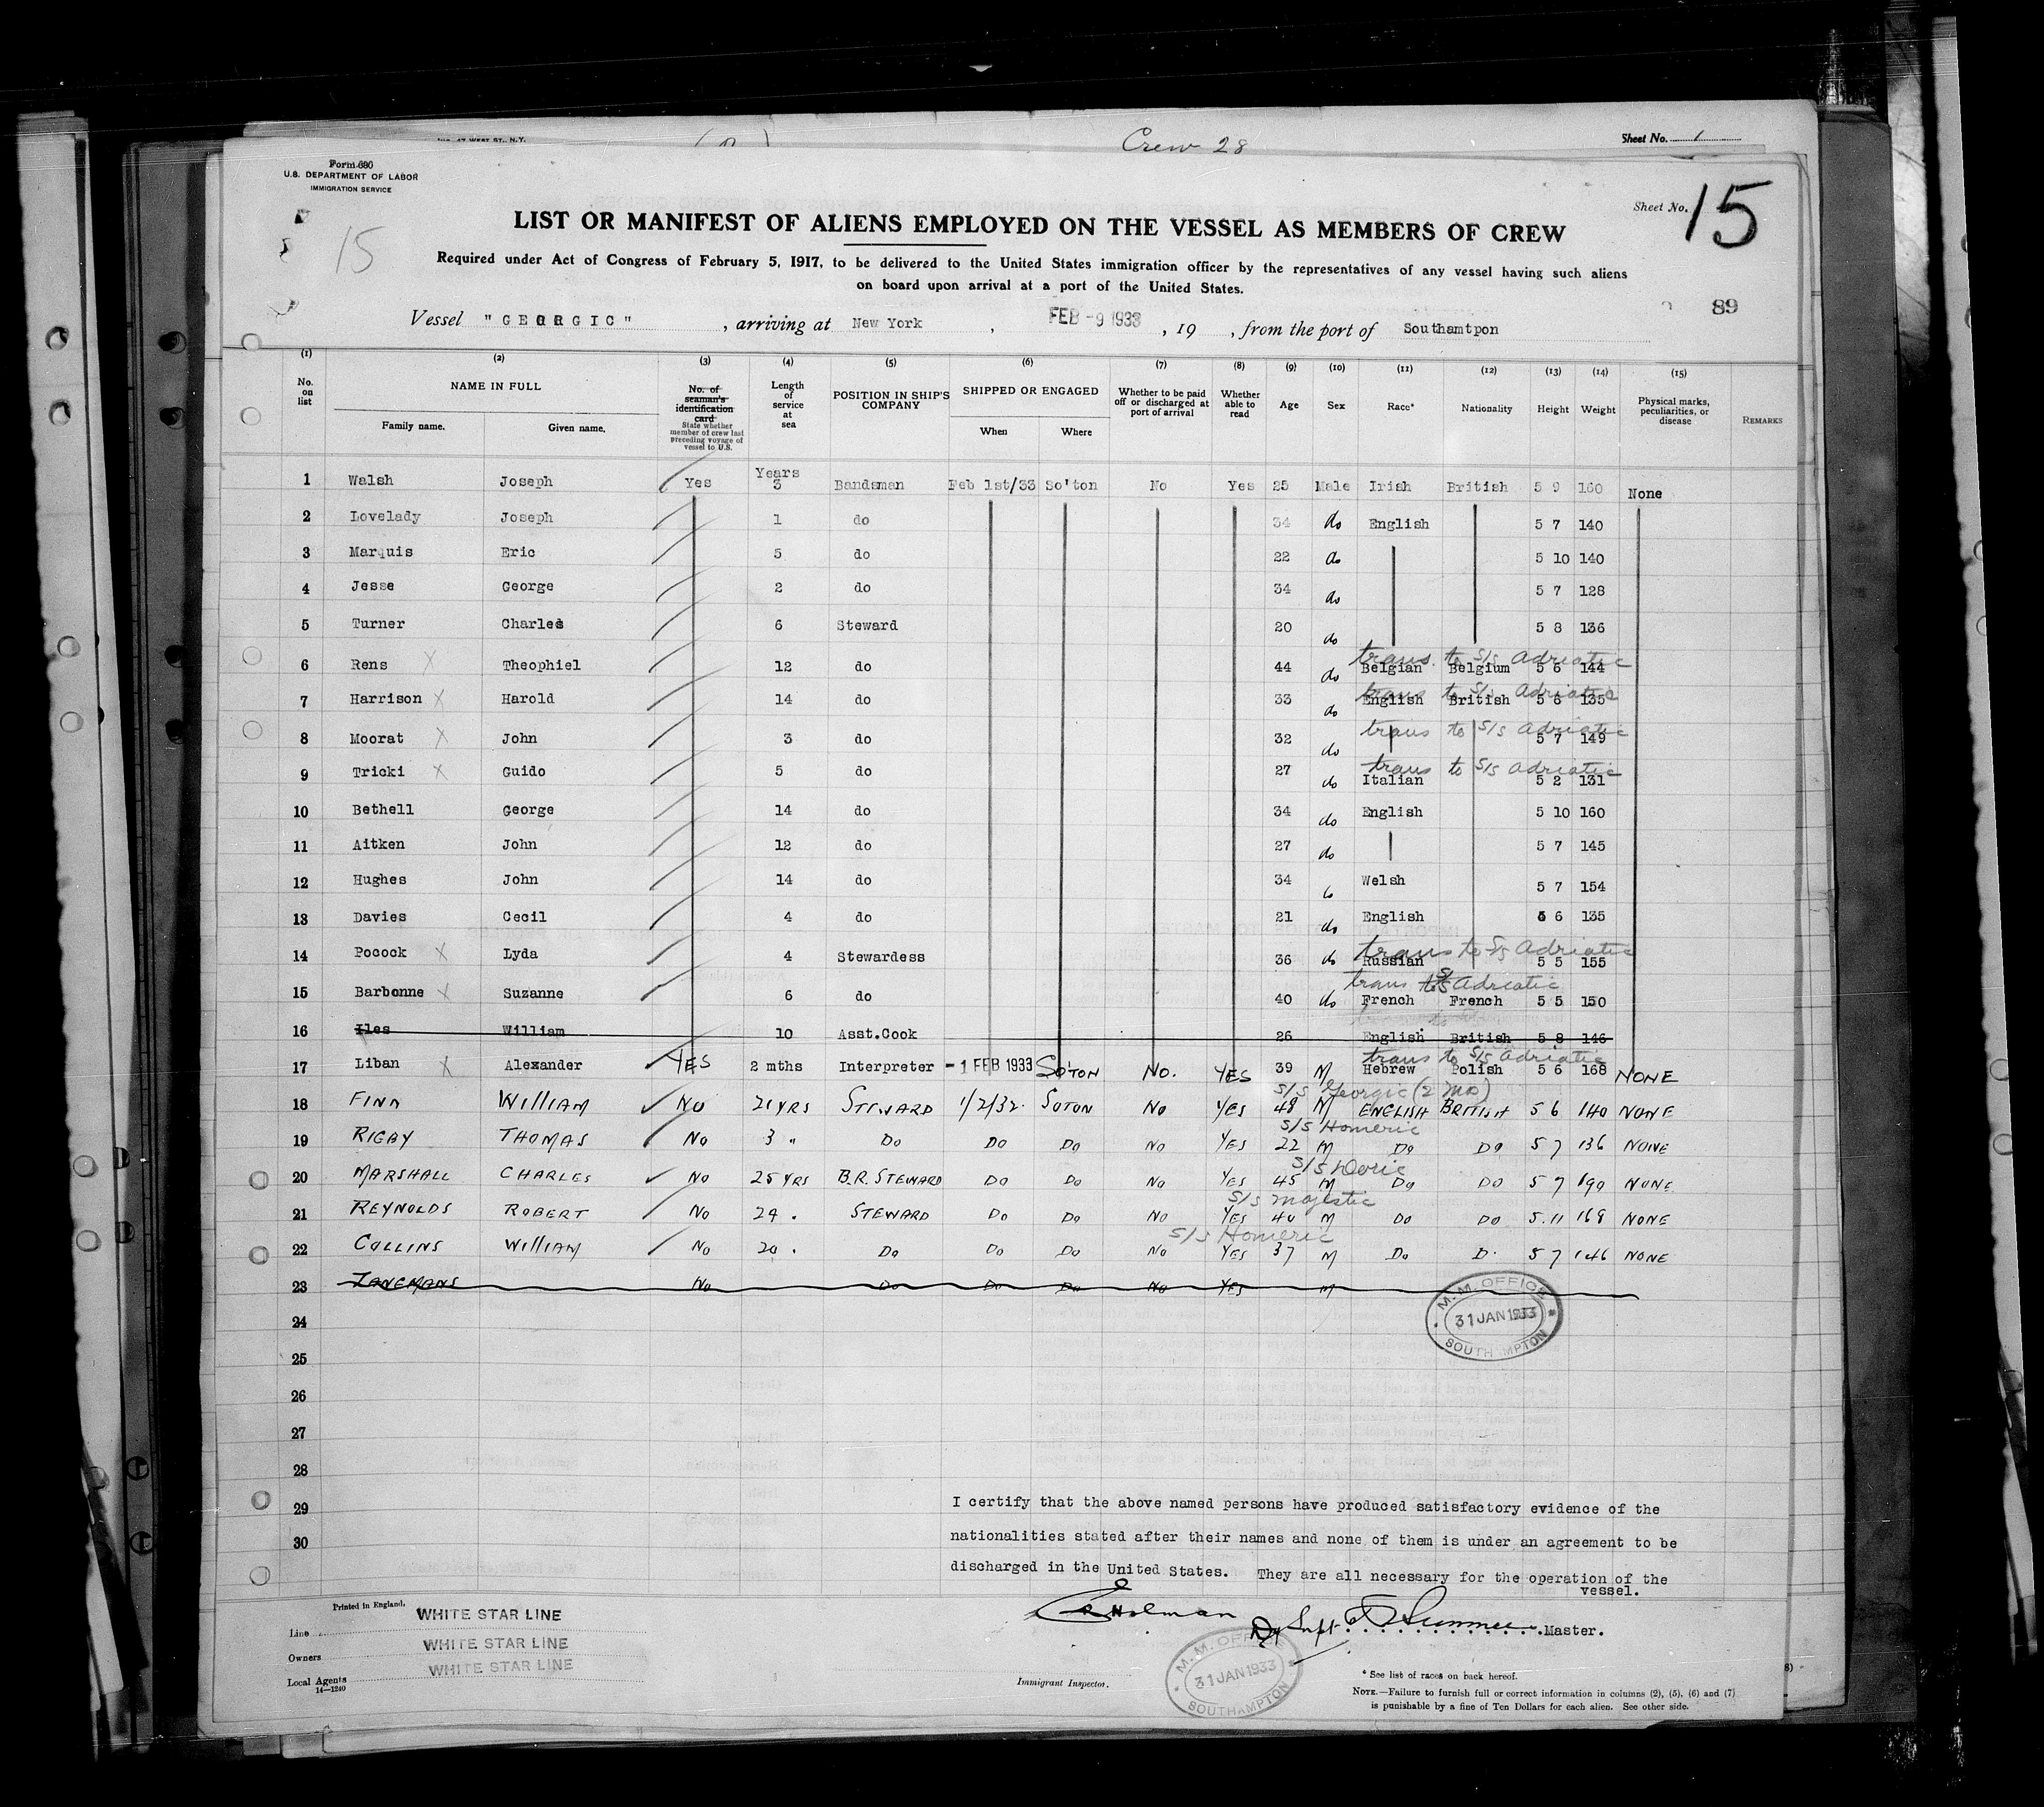 Crew 28
Sheet No. 1
Form 680
U.S. DEPARTMENT OF LABOR
IMMIGRATION SERVICE
15
Sheet No. 15
LIST OR MANIFEST OF ALIENS EMPLOYED ON THE VESSEL AS MEMBERS OF CREW
Required under Act of Congress of February 5, 1917, to be delivered to the United States immigration officer by the representatives of any vessel having such aliens
on board upon arrival at a port of the United States.
89
Vessel "GEORGIC", arriving at New York, FEB -9 1933, 19 , from the port of Southamtpon
(1) (2) (3) (4) (5) (6) (7) (8) (9) (10) (11) (12) (13) (14) (15)
No. on list NAME IN FULL Family name. Given name. No. of seaman's identification card State whether member of crew last preceding voyage of vessel to U.S. Length of service at sea POSITION IN SHIP'S COMPANY SHIPPED OR ENGAGED When Where Whether to be paid off or discharged at port of arrival Whether able to read Age Sex Race* Nationality Height Weight Physical marks, peculiarities, or disease REMARKS
1 Walsh Joseph Yes Years 3 Bandsman Feb 1st/33 So'ton No Yes 25 Male Irish British 5 9 160 None
2 Lovelady Joseph 1 do 34 do English 5 7 140
3 Marquis Eric 5 do 22 do 5 10 140
4 Jesse George 2 do 34 do 5 7 128
5 Turner Charles 6 Steward 20 do 5 8 136
trans. to S/S Adriatic
6 Rens X Theophiel 12 do 44 do Belgian Belgium 5 6 144
trans to S/S Adriatic
7 Harrison X Harold 14 do 33 do English British 5 6 135
trans to S/S Adriatic
8 Moorat X John 3 do 32 do 5 7 149
trans to S/S Adriatic
9 Tricki X Guido 5 do 27 do Italian 5 2 131
10 Bethell George 14 do 34 do English 5 10 160
11 Aitken John 12 do 27 do 5 7 145
12 Hughes John 14 do 34 Welsh 5 7 154
13 Davies Cecil 4 do 21 do English 5 6 135
trans to S/S Adriatic
14 Pocock X Lyda 4 Stewardess 36 do Russian 5 5 155
trans to S/S Adriatic
15 Barbonne X Suzanne 6 do 40 do French French 5 5 150
16 Iles William 10 Asst.Cook 26 English British 5 8 146
trans to S/S Adriatic
17 Liban X Alexander YES 2 mths Interpreter -1 FEB 1933 SO'TON NO. YES 39 M Hebrew Polish 5 6 168 NONE
S/S Georgic (2 mo)
18 FINN WILLIAM NO 21 YRS STEWARD 1/2/32. SOTON NO YES 48 M ENGLISH BRITISH 5 6 140 NONE
S/S Homeric
19 RIGBY THOMAS NO 3 " DO DO DO NO YES 22 M DO DO 5 7 136 NONE
S/S Doric
20 MARSHALL CHARLES NO 25 YRS B.R. STEWARD DO DO NO YES 45 M DO DO 5 7 NONE.
S/S Majestic
21 REYNOLDS ROBERT NO 24 . STEWARD DO DO NO YES 40 M DO DO 5.11 168 NONE
S/S Homeric
22 COLLINS WILLIAM NO 20 . DO DO DO NO YES 37 M DO D. 5 7 146 NONE
23 NO DO DO DO NO YES M
M.M. OFFICE
31 JAN 1933
SOUTHAMPTON
24
25
26
27
28
29
30
I certify that the above named persons have produced satisfactory evidence of the
nationalities stated after their names and none of them is under an agreement to be
discharged in the United States. They are all necessary for the operation of the
vessel.
Printed in England.
Line WHITE STAR LINE
Owners WHITE STAR LINE
Local Agents WHITE STAR LINE
14—1240
Holman
Dy Supt. Master.
M.M. OFFICE
31 JAN 1933
SOUTHAMPTON
Immigrant Inspector.
* See list of races on back hereof.
NOTE.—Failure to furnish full or correct information in columns (2), (5), (6) and (7)
is punishable by a fine of Ten Dollars for each alien. See other side.